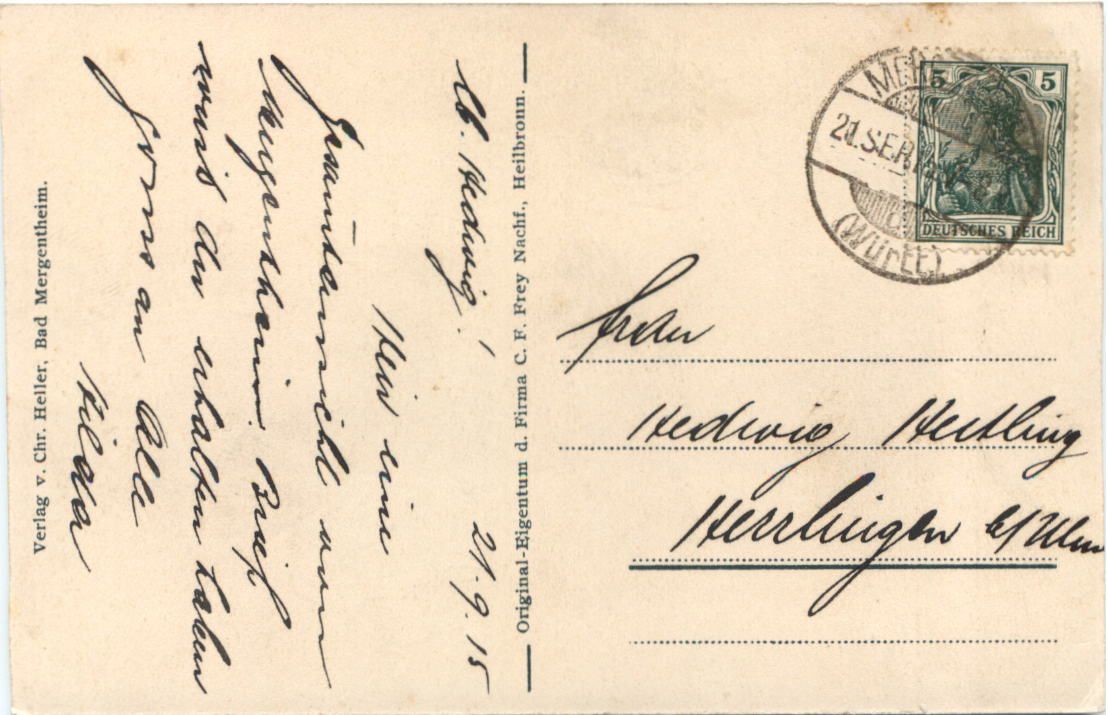 Lb. Hedwig!
21.9.15
Hier eine
Gesamtansicht von
Mergentheim. Brief
wirst du erhalten haben
Gruss an Alle
Hilda
Verlag v. Chr. Heller, Bad Mergentheim.
Original-Eigentum d. Firma C. F. Frey Nachf., Heilbronn.
MERG
21.SEP.
(Württ)
5 5
DEUTSCHES REICH
Hedwig
Herrlingen b/Ulm